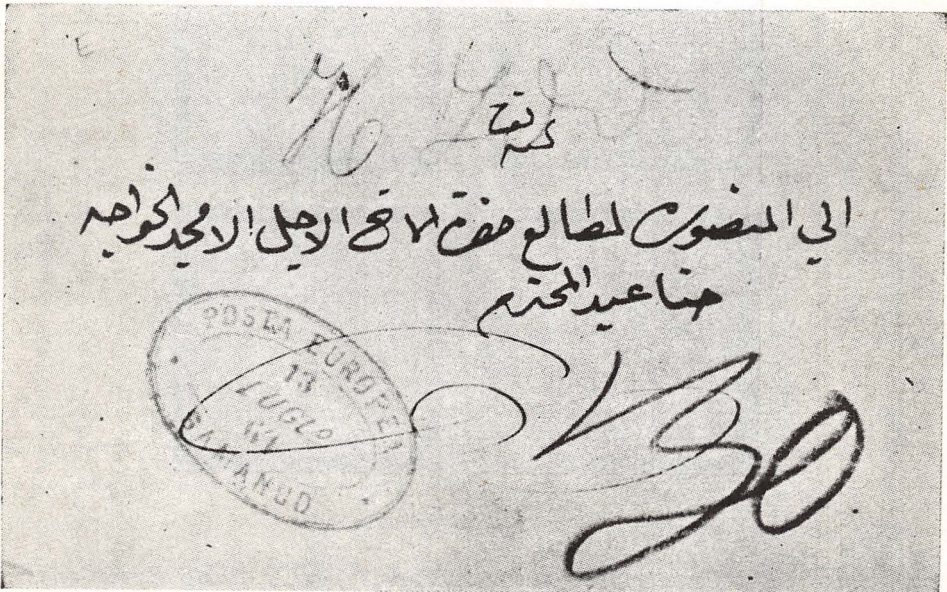 الي المنصوره لمطالع حضرة الاخ الاجل الامجد الخواجه
حنا عيد المحترم
POSTA EUROPEA
13
LUGLO
61
SAMANUD